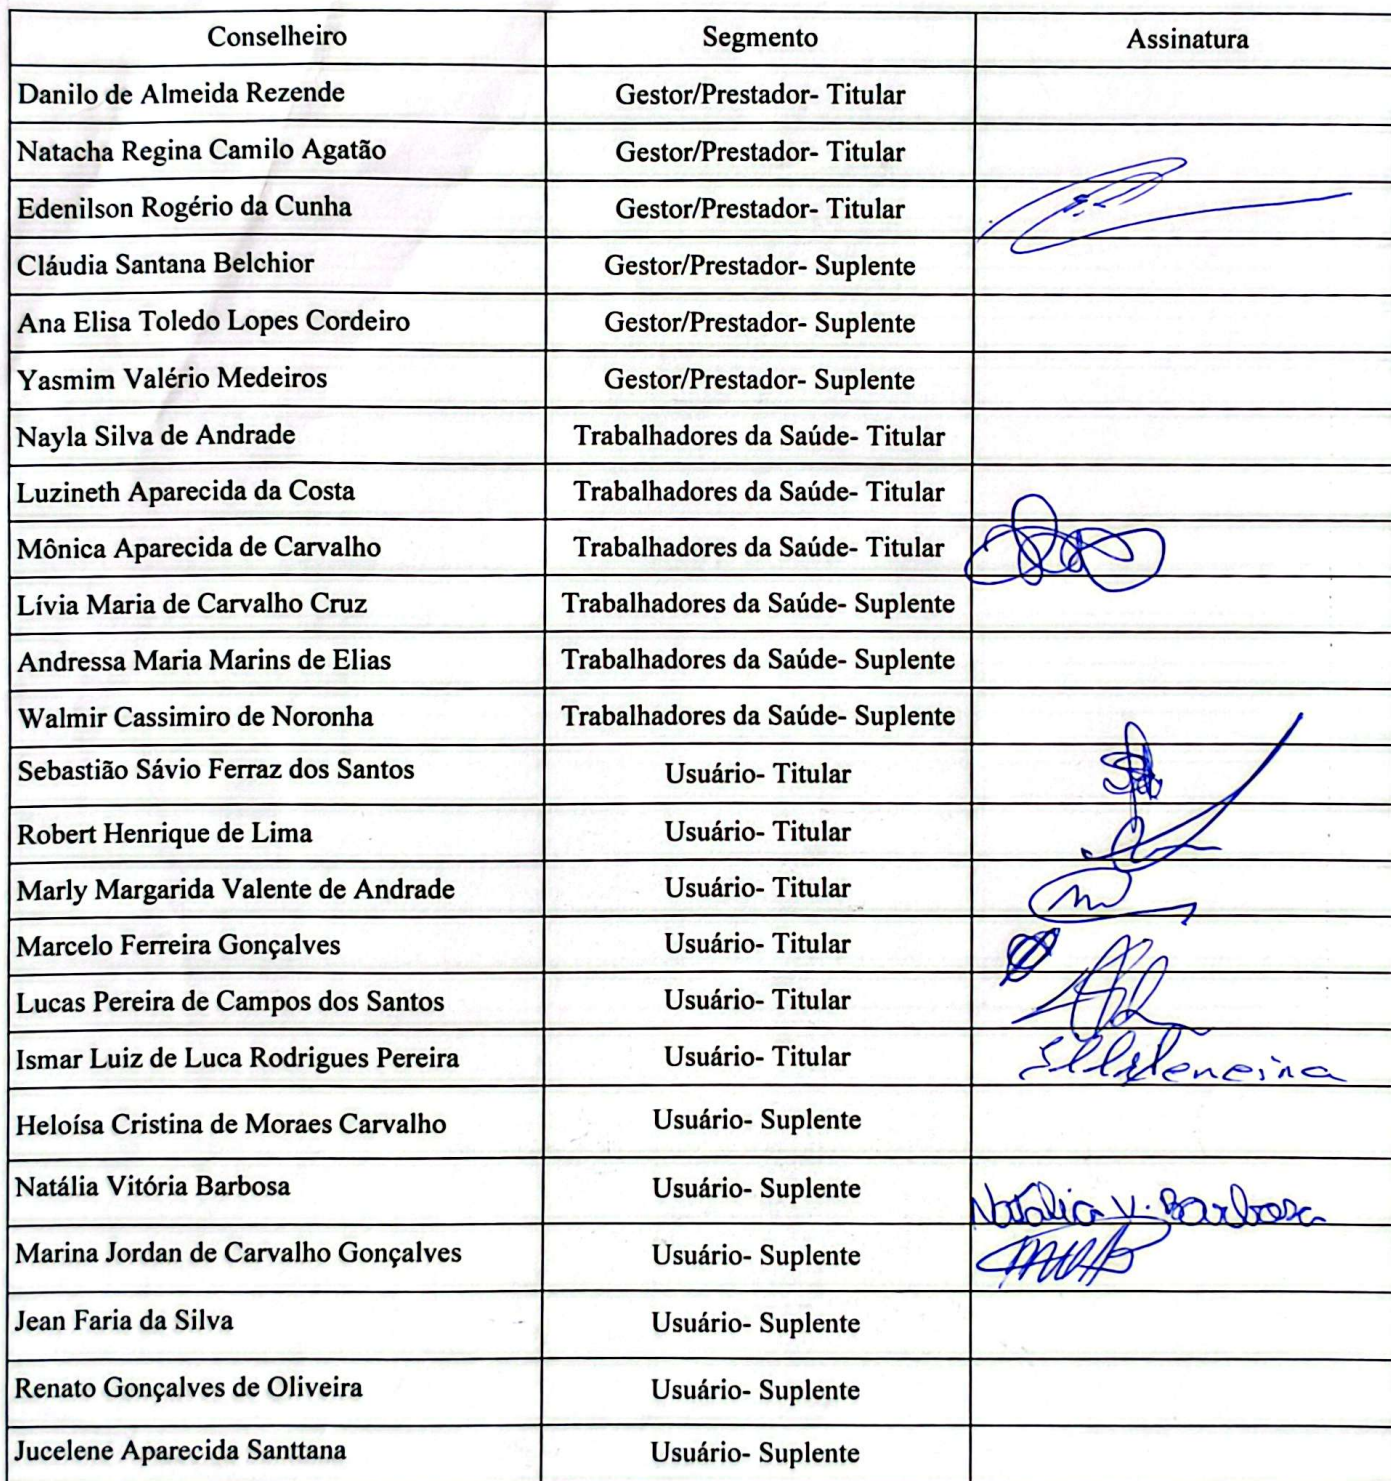 Conselheiro Segmento Assinatura
Danilo de Almeida Rezende Gestor/Prestador- Titular
Natacha Regina Camilo Agatão Gestor/Prestador- Titular
Edenilson Rogério da Cunha Gestor/Prestador- Titular
Cláudia Santana Belchior Gestor/Prestador- Suplente
Ana Elisa Toledo Lopes Cordeiro Gestor/Prestador- Suplente
Yasmim Valério Medeiros Gestor/Prestador- Suplente
Nayla Silva de Andrade Trabalhadores da Saúde- Titular
Luzineth Aparecida da Costa Trabalhadores da Saúde- Titular
Mônica Aparecida de Carvalho Trabalhadores da Saúde- Titular
Lívia Maria de Carvalho Cruz Trabalhadores da Saúde- Suplente
Andressa Maria Marins de Elias Trabalhadores da Saúde- Suplente
Walmir Cassimiro de Noronha Trabalhadores da Saúde- Suplente
Sebastião Sávio Ferraz dos Santos Usuário- Titular
Robert Henrique de Lima Usuário- Titular
Marly Margarida Valente de Andrade Usuário- Titular
Marcelo Ferreira Gonçalves Usuário- Titular
Lucas Pereira de Campos dos Santos Usuário- Titular
Ismar Luiz de Luca Rodrigues Pereira Usuário- Titular
Heloísa Cristina de Moraes Carvalho Usuário- Suplente
Natália Vitória Barbosa Usuário- Suplente Natália V. Barbosa
Marina Jordan de Carvalho Gonçalves Usuário- Suplente
Jean Faria da Silva Usuário- Suplente
Renato Gonçalves de Oliveira Usuário- Suplente
Jucelene Aparecida Santtana Usuário- Suplente